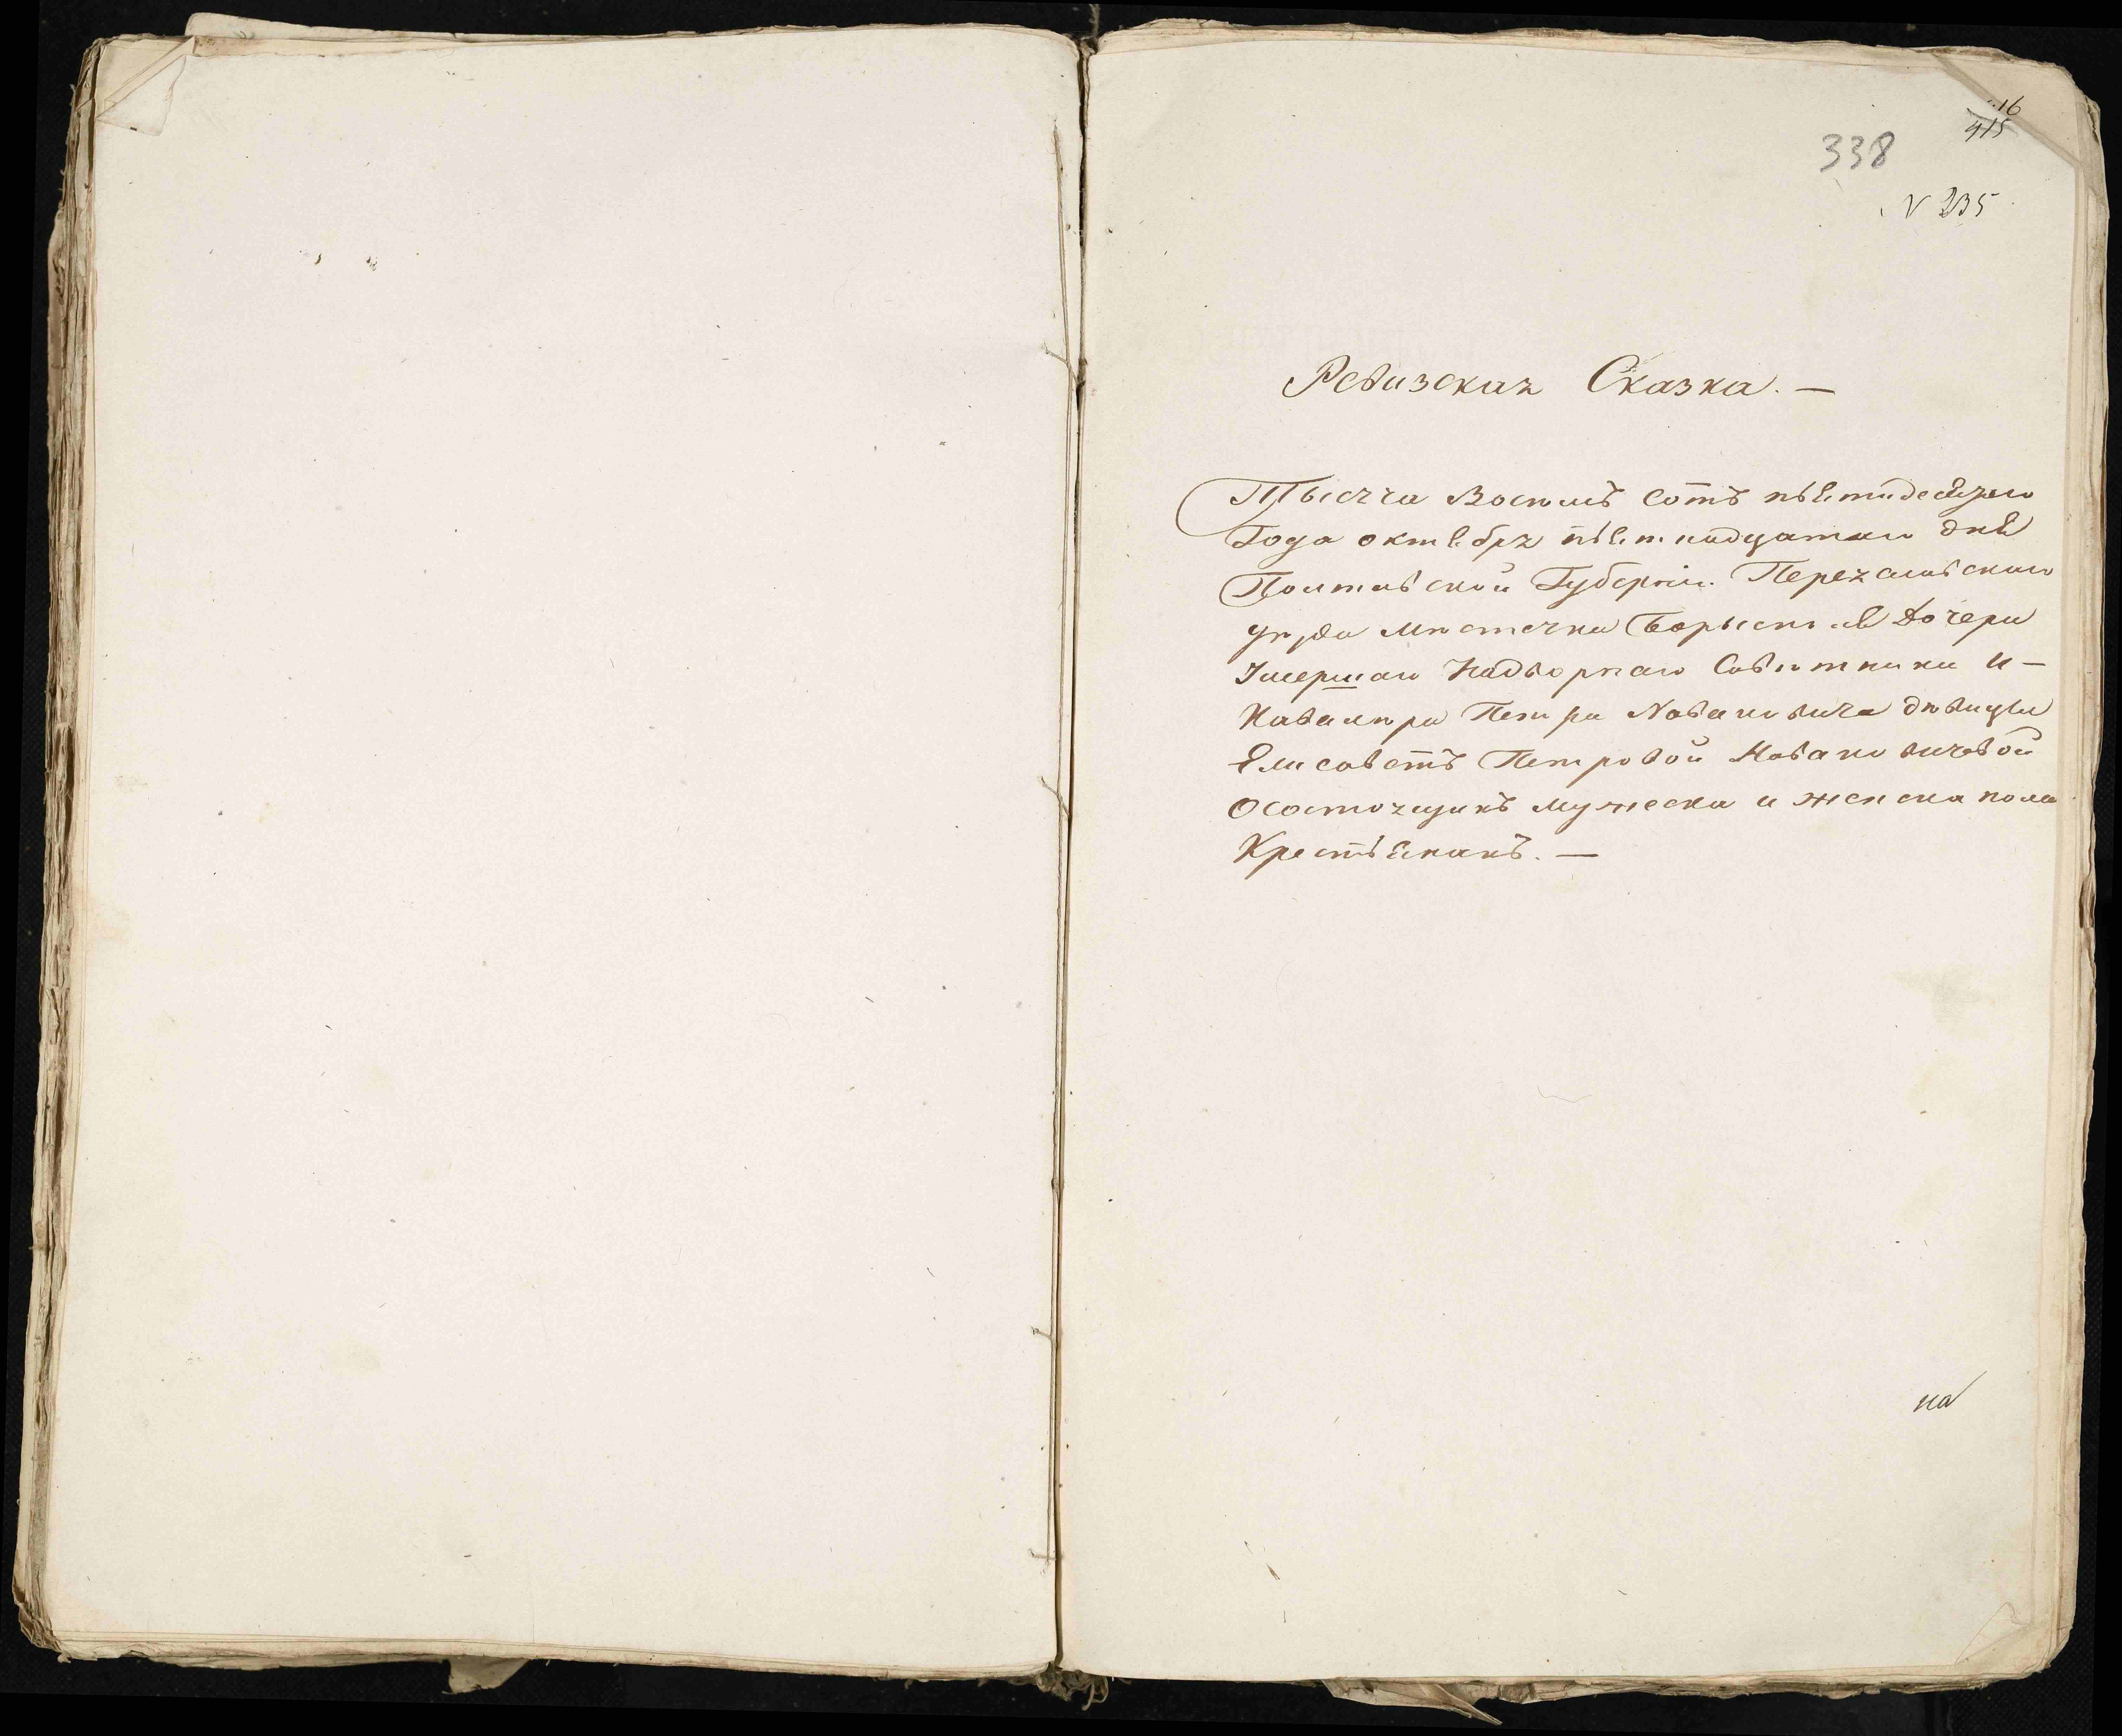 16
415
338
N 235
Ревизская Сказка. —
Тысяча Восемъ сотъ пьятидесятого
Года октября пьятнадцатаго дня
Полтавской Губерніи Переяславскаго
уѣзда Мѣстечка Борысполя Дочери
Умершаго Надворнаго Совѣтника и —
Кавалѣра Петра Навановича дѣвицы
Елисаветъ Петровой Навановичевой
О состоящихъ мужеска и женска пола
Крестьянахъ. —
на